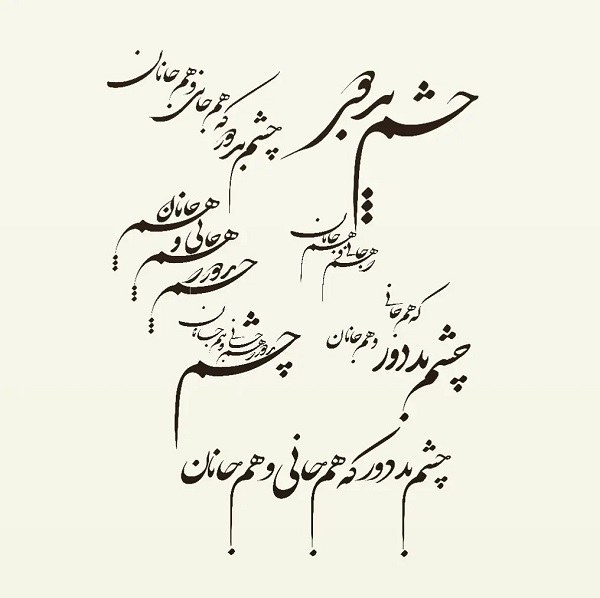 چشم بد دور
هم جانی و هم جانان
چشم بد دور که هم جانی و هم جانان
هم جانان
هم جانی و
چشم بد دور
که هم جانی
و هم جانان
چشم بد دور
چشم بد دور هم جانی و هم جانان
چشم بد دور که هم جانی و هم جانان